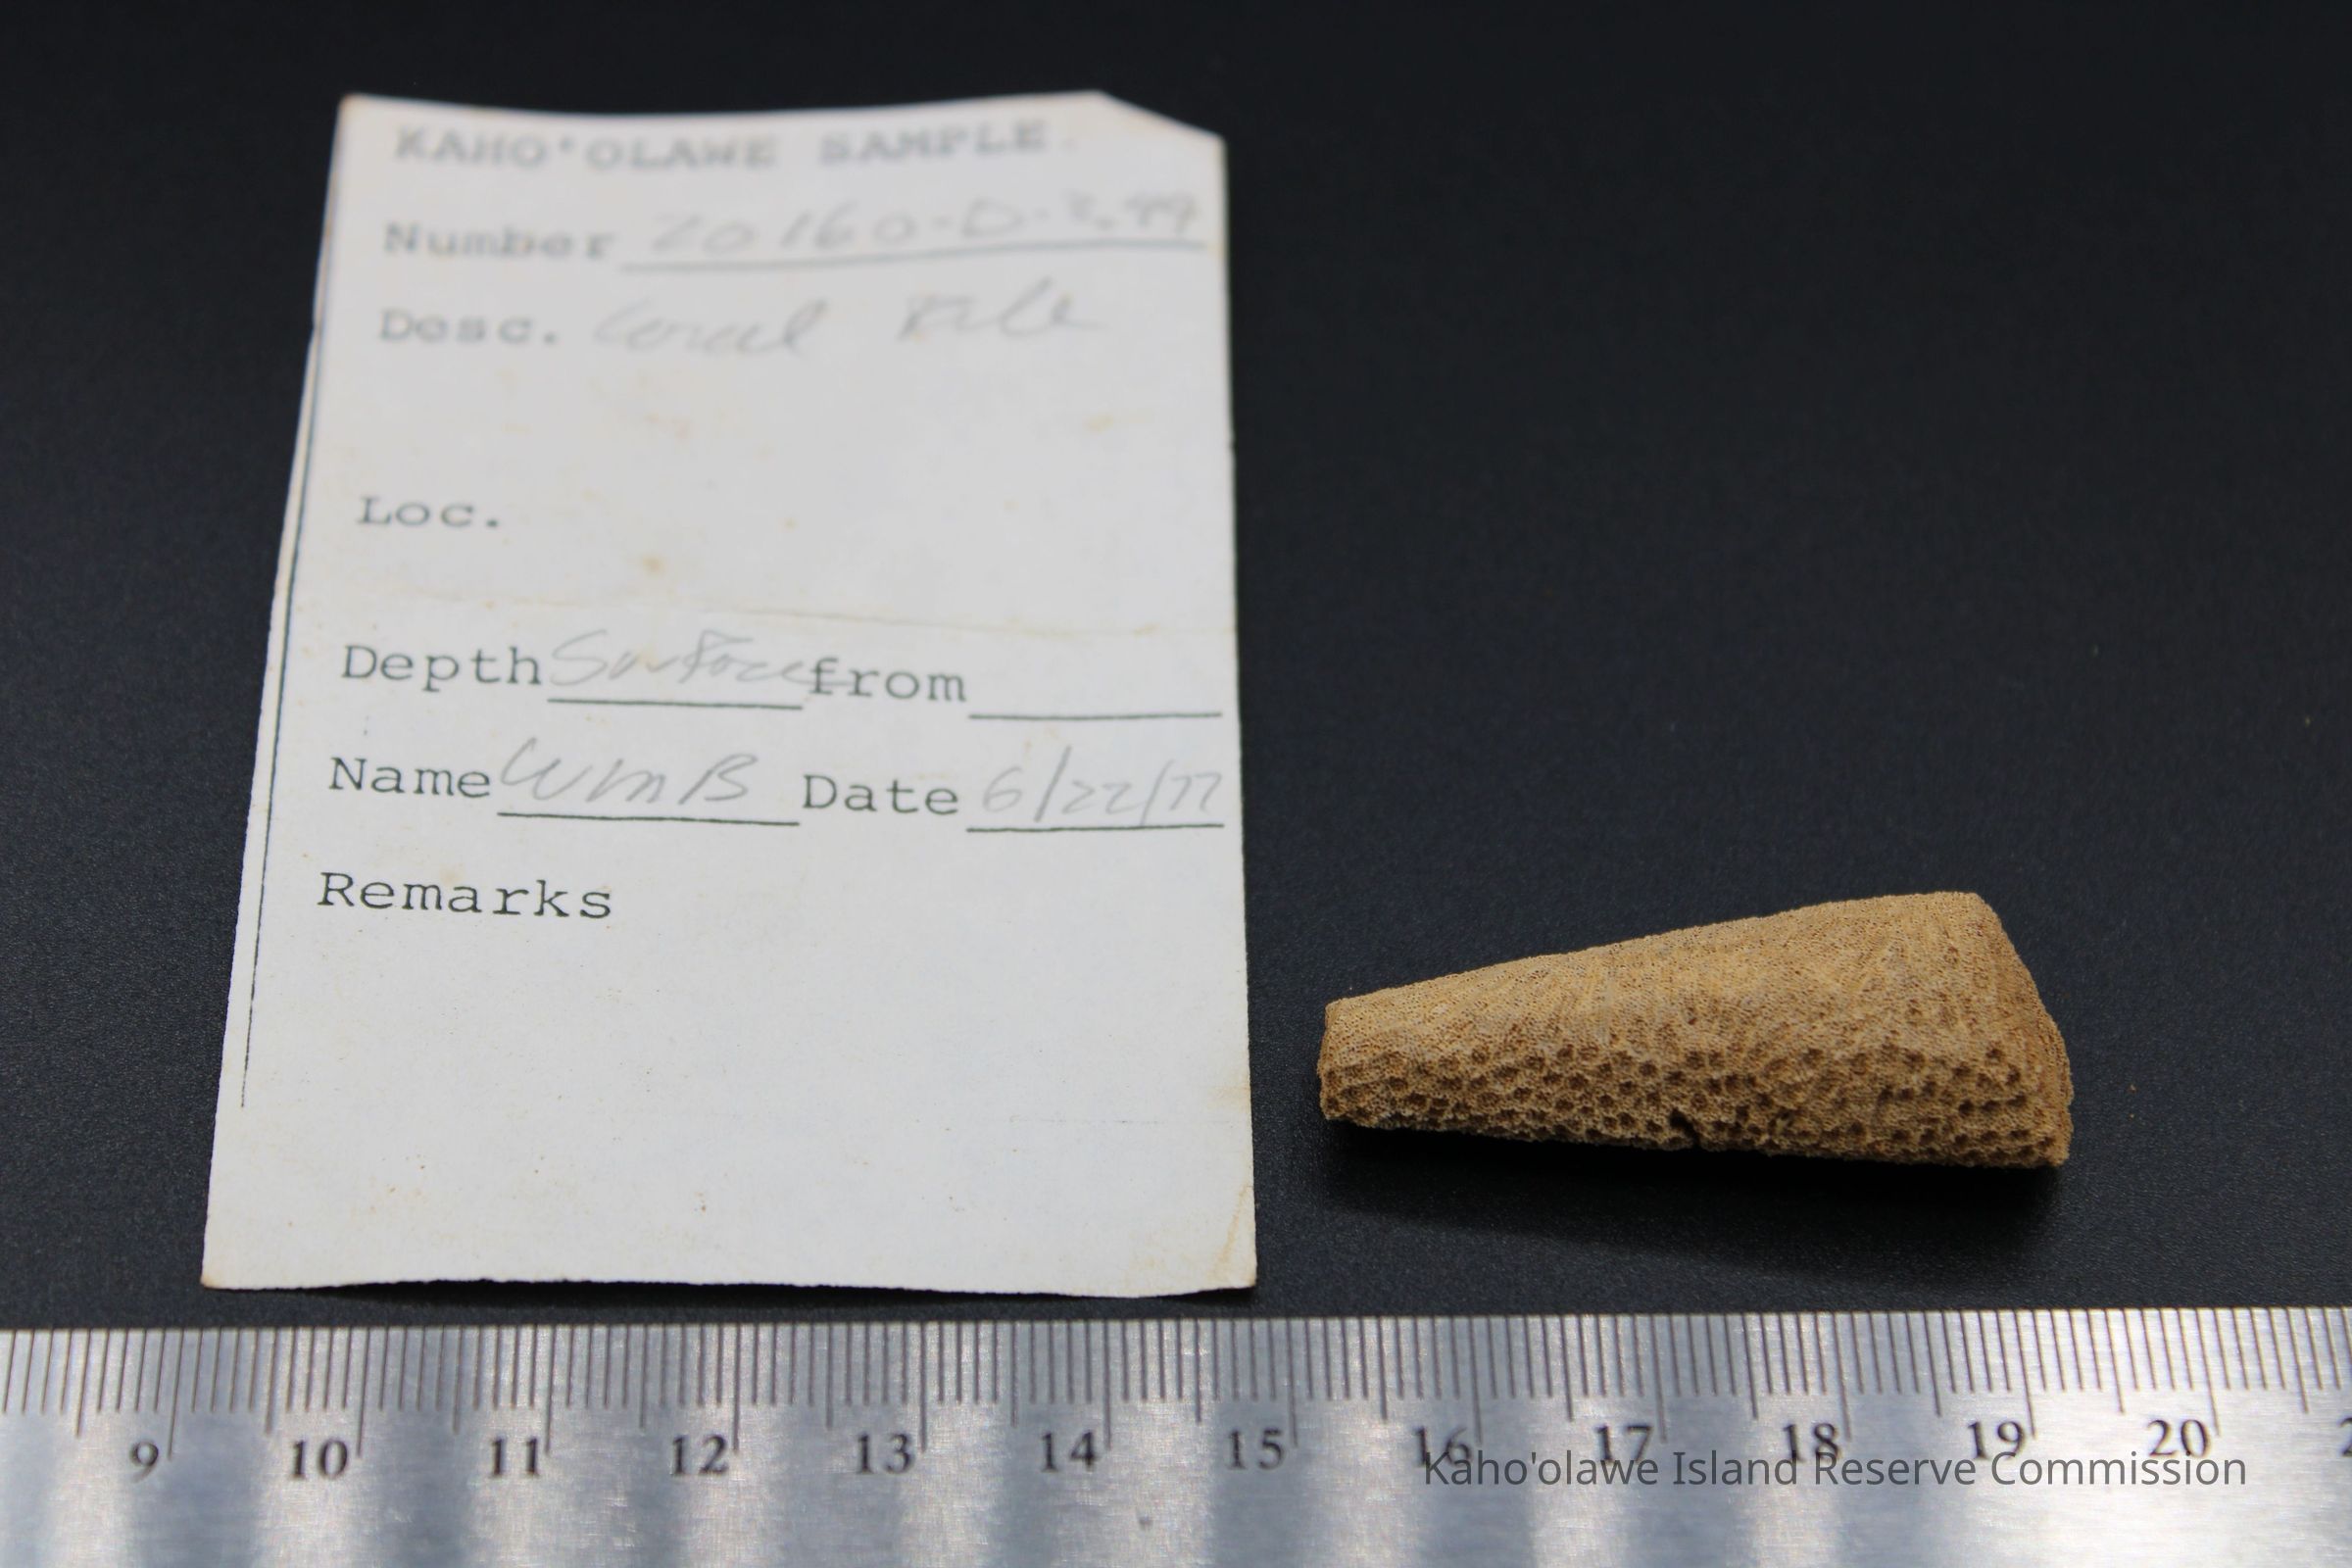 KAHO'OLAWE SAMPLE.
Number 20160-D-3.99
Desc. Coral File
Loc.
Depth Surface from
Name WmB Date 6/22/77
Remarks
9 10 11 12 13 14 15 16 17 18 19 20
Kaho'olawe Island Reserve Commission